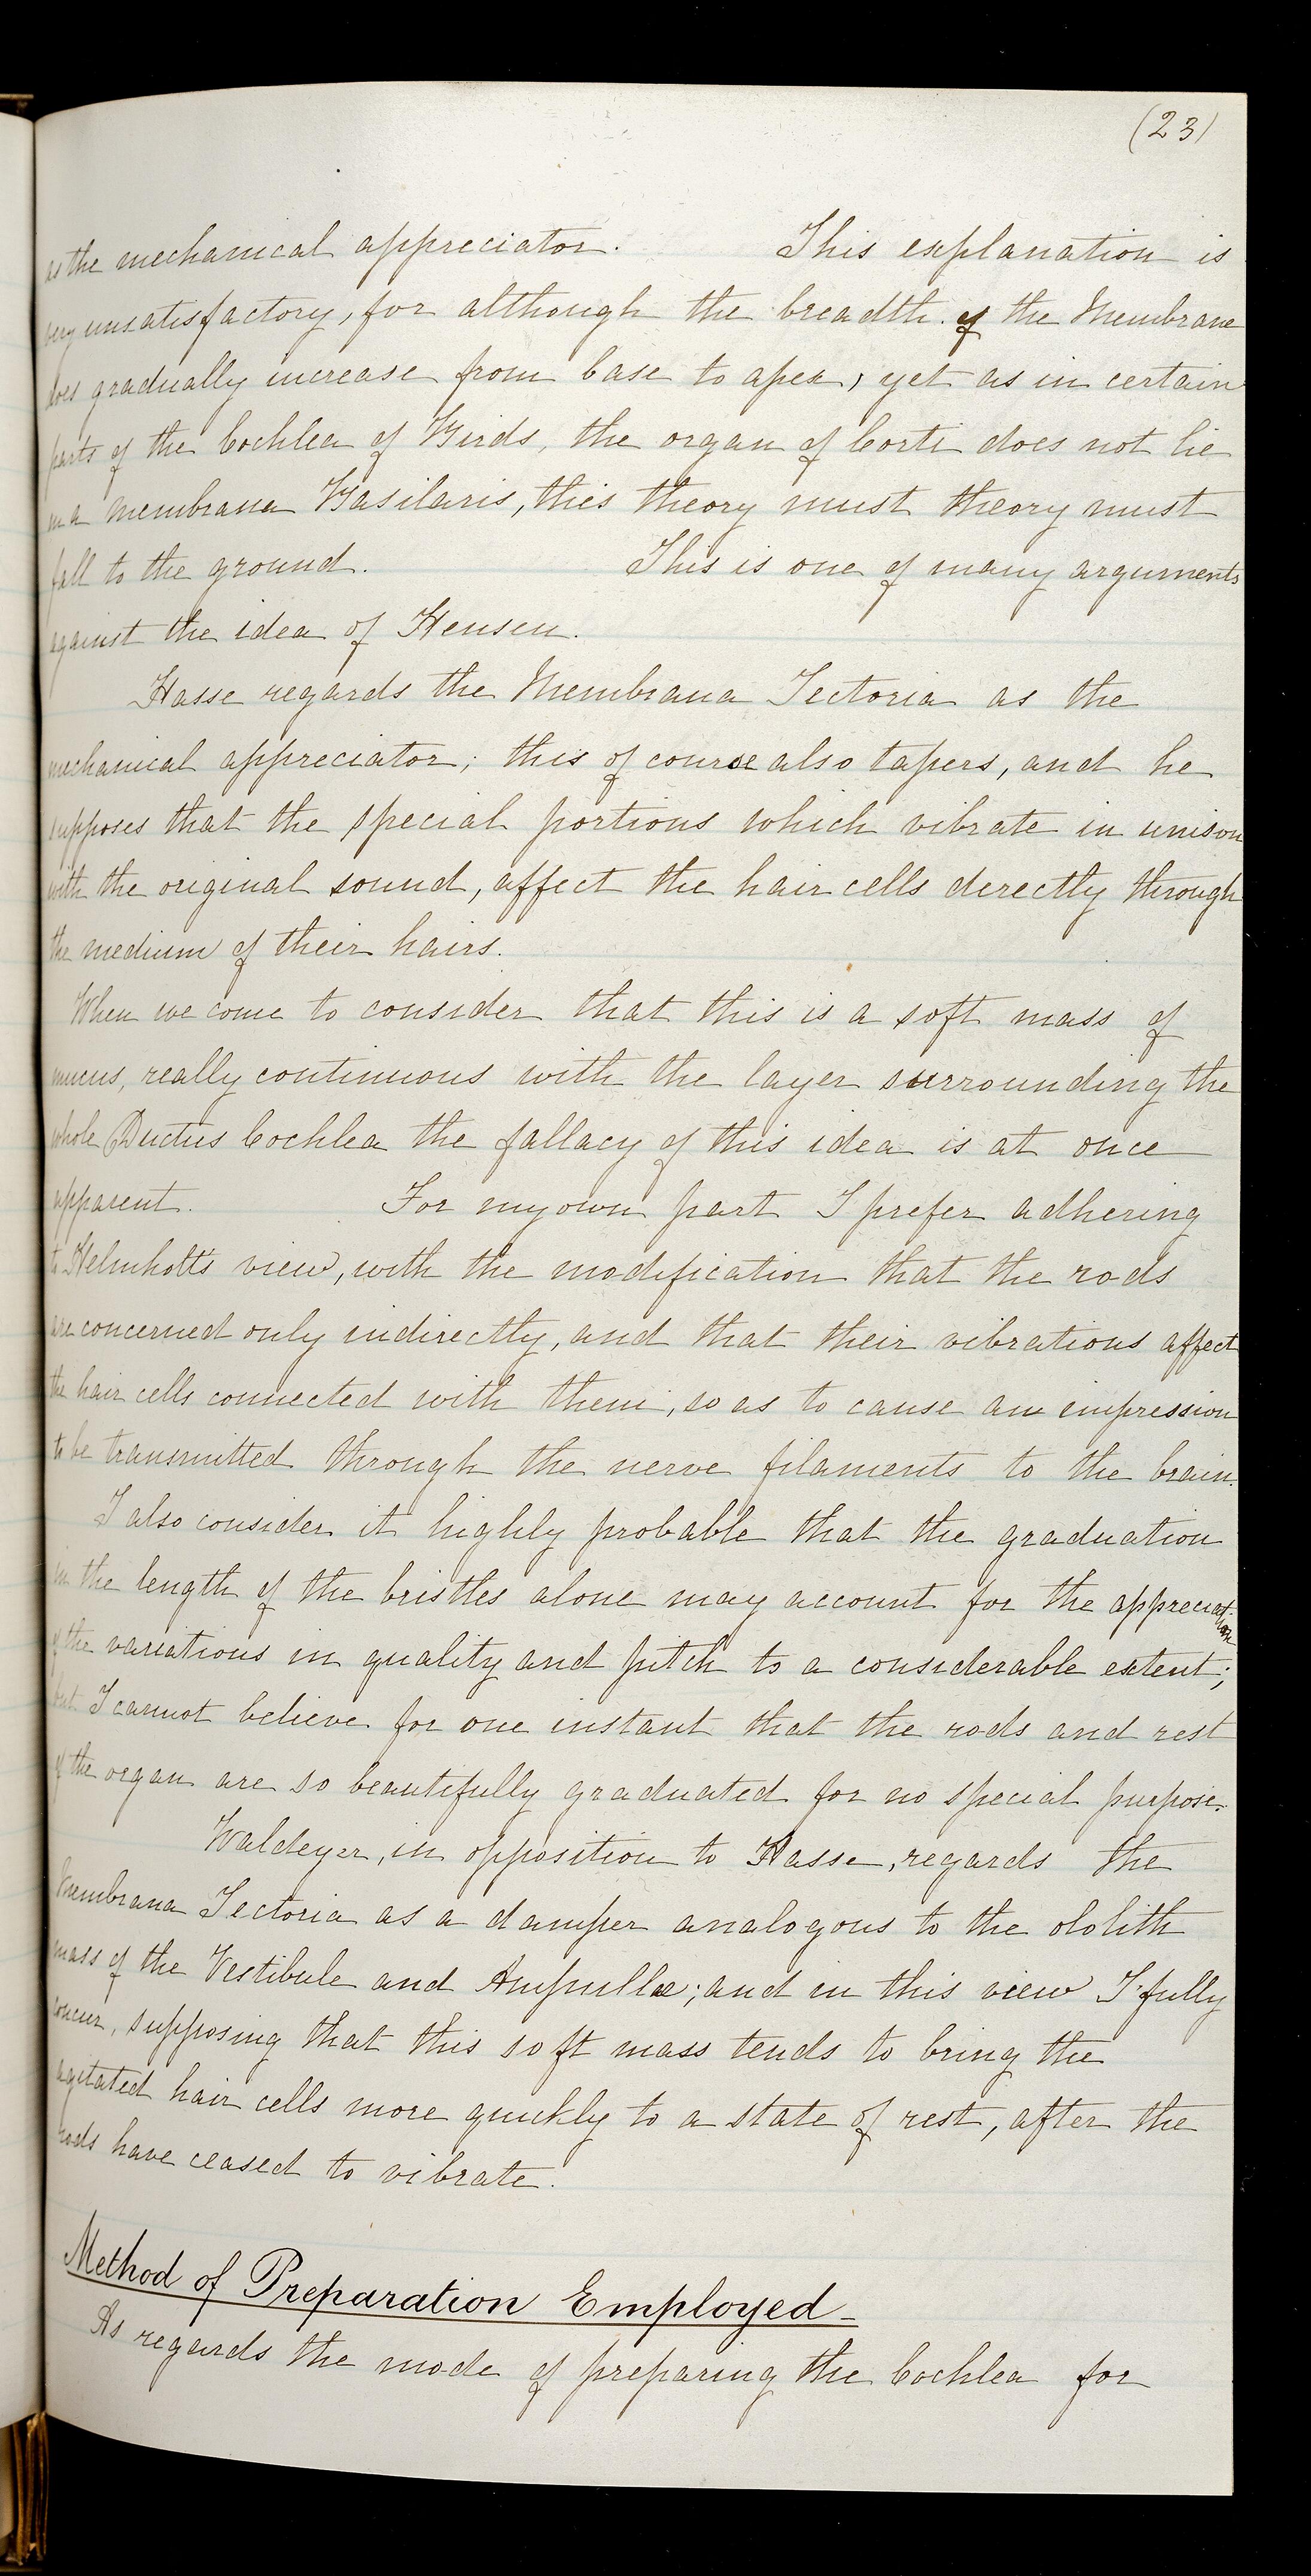 (23)
as the mechanical appreciator. This explanation is
very unsatisfactory, for although the breadth of the Membrane
does gradually increase from base to apex, yet as in certain
parts of the Cochlea of Birds, the organ of Corti does not lie
on a membrana Basilaris, this theory must theory must
fall to the ground. This is one of many arguments
against the idea of Hensen.
Hasse regards the Membrana Tectoria as the
mechanical appreciator; this of course also tapers, and he
supposes that the special portions which vibrate in unison
with the original sound, affect the hair cells derectly through
the medium of their hairs.
When we come to consider that this is a soft mass of
mucus, really continuous with the layer surrounding the
whole Ductus Cochlea the fallacy of this idea is at once
apparent. For my own part I prefer adhering
to Helmholtt's view, with the modification that the rods
are concerned only indirectly, and that their vibrations affect
the hair cells connected with them, so as to cause an impression
to be transmitted through the nerve filaments to the brain.
I also consider it highly probable that the graduation
in the length of the bristles alone may account for the appreciation
of the variations in quality and pitch to a considerable extent;
but I cannot believe for one instant that the rods and rest
of the organ are so beautifully graduated for no special purpose.
Waldeyer, in opposition to Hasse, regards the
Membrana Tectoria as a damper analogous to the otolith
mass of the Vestibule and Ampullæ; and in this view I fully
concur, supposing that this soft mass tends to bring the
agitated hair cells more quickly to a state of rest, after the
rods have ceased to vibrate.
Method of Preparation Employed_
As regards the mode of preparing the Cochlea for